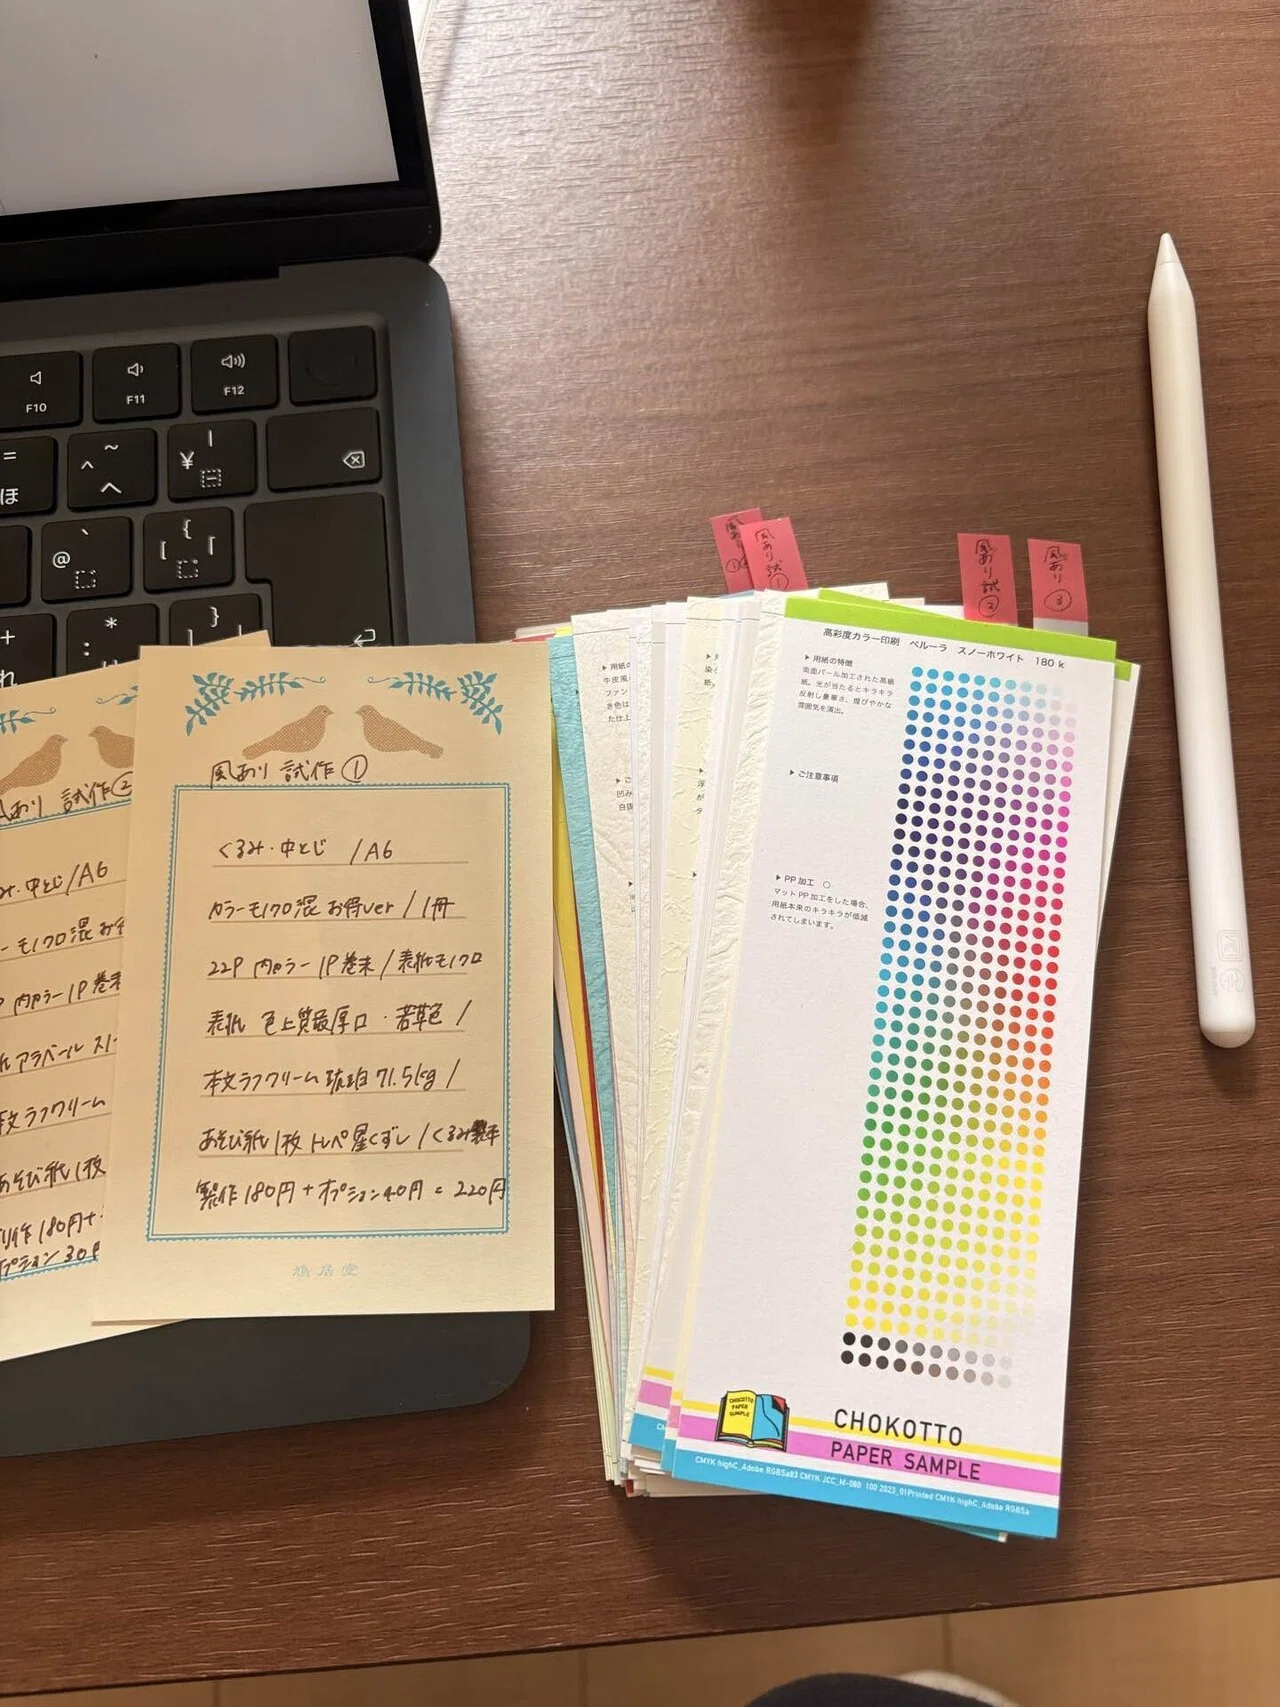 F10
F11
F12
=
~
^
へ
|
¥
ほ
@
`
{
[
「
+
*
:
}
れ
風あり 試作②
み・中とじ/A6
ーモノクロ混 お得
P 内カラー1P巻末
紙 アラベール スノー
文ラフクリーム
あそび紙1枚
製作180円+
オプション30円
風あり 試作①
くるみ・中とじ /A6
カラーモノクロ混 お得ver/1冊
22P 内カラー1P巻末/表紙モノクロ
表紙 色上質最厚口・若草色/
本文ラフクリーム琥珀71.5kg/
あそび紙1枚 トレペ星くずし/くるみ製本
製作180円+オプション40円=220円
鳩居堂
風あり
風あり試①
風あり試②
風あり③
▶用紙の
牛皮風
ファン
き色は
た仕上
凹み
白抜
染と
紙。
浮
が
タ
高彩度カラー印刷 ペルーラ スノーホワイト 180k
▶用紙の特徴
両面パール加工された高級
紙。光が当たるとキラキラ
反射し豪華さ、煌びやかな
雰囲気を演出。
▶ご注意事項
▶PP加工 ○
マットPP加工をした場合、
用紙本来のキラキラが低減
されてしまいます。
CHOKOTTO
PAPER
SUMPLE
CHOKOTTO
PAPER SAMPLE
CMYK highC_Adobe RGBSa83 CMYK JCC_M-080 100 2023_01Printed CMYK highC_Adobe RGBSa